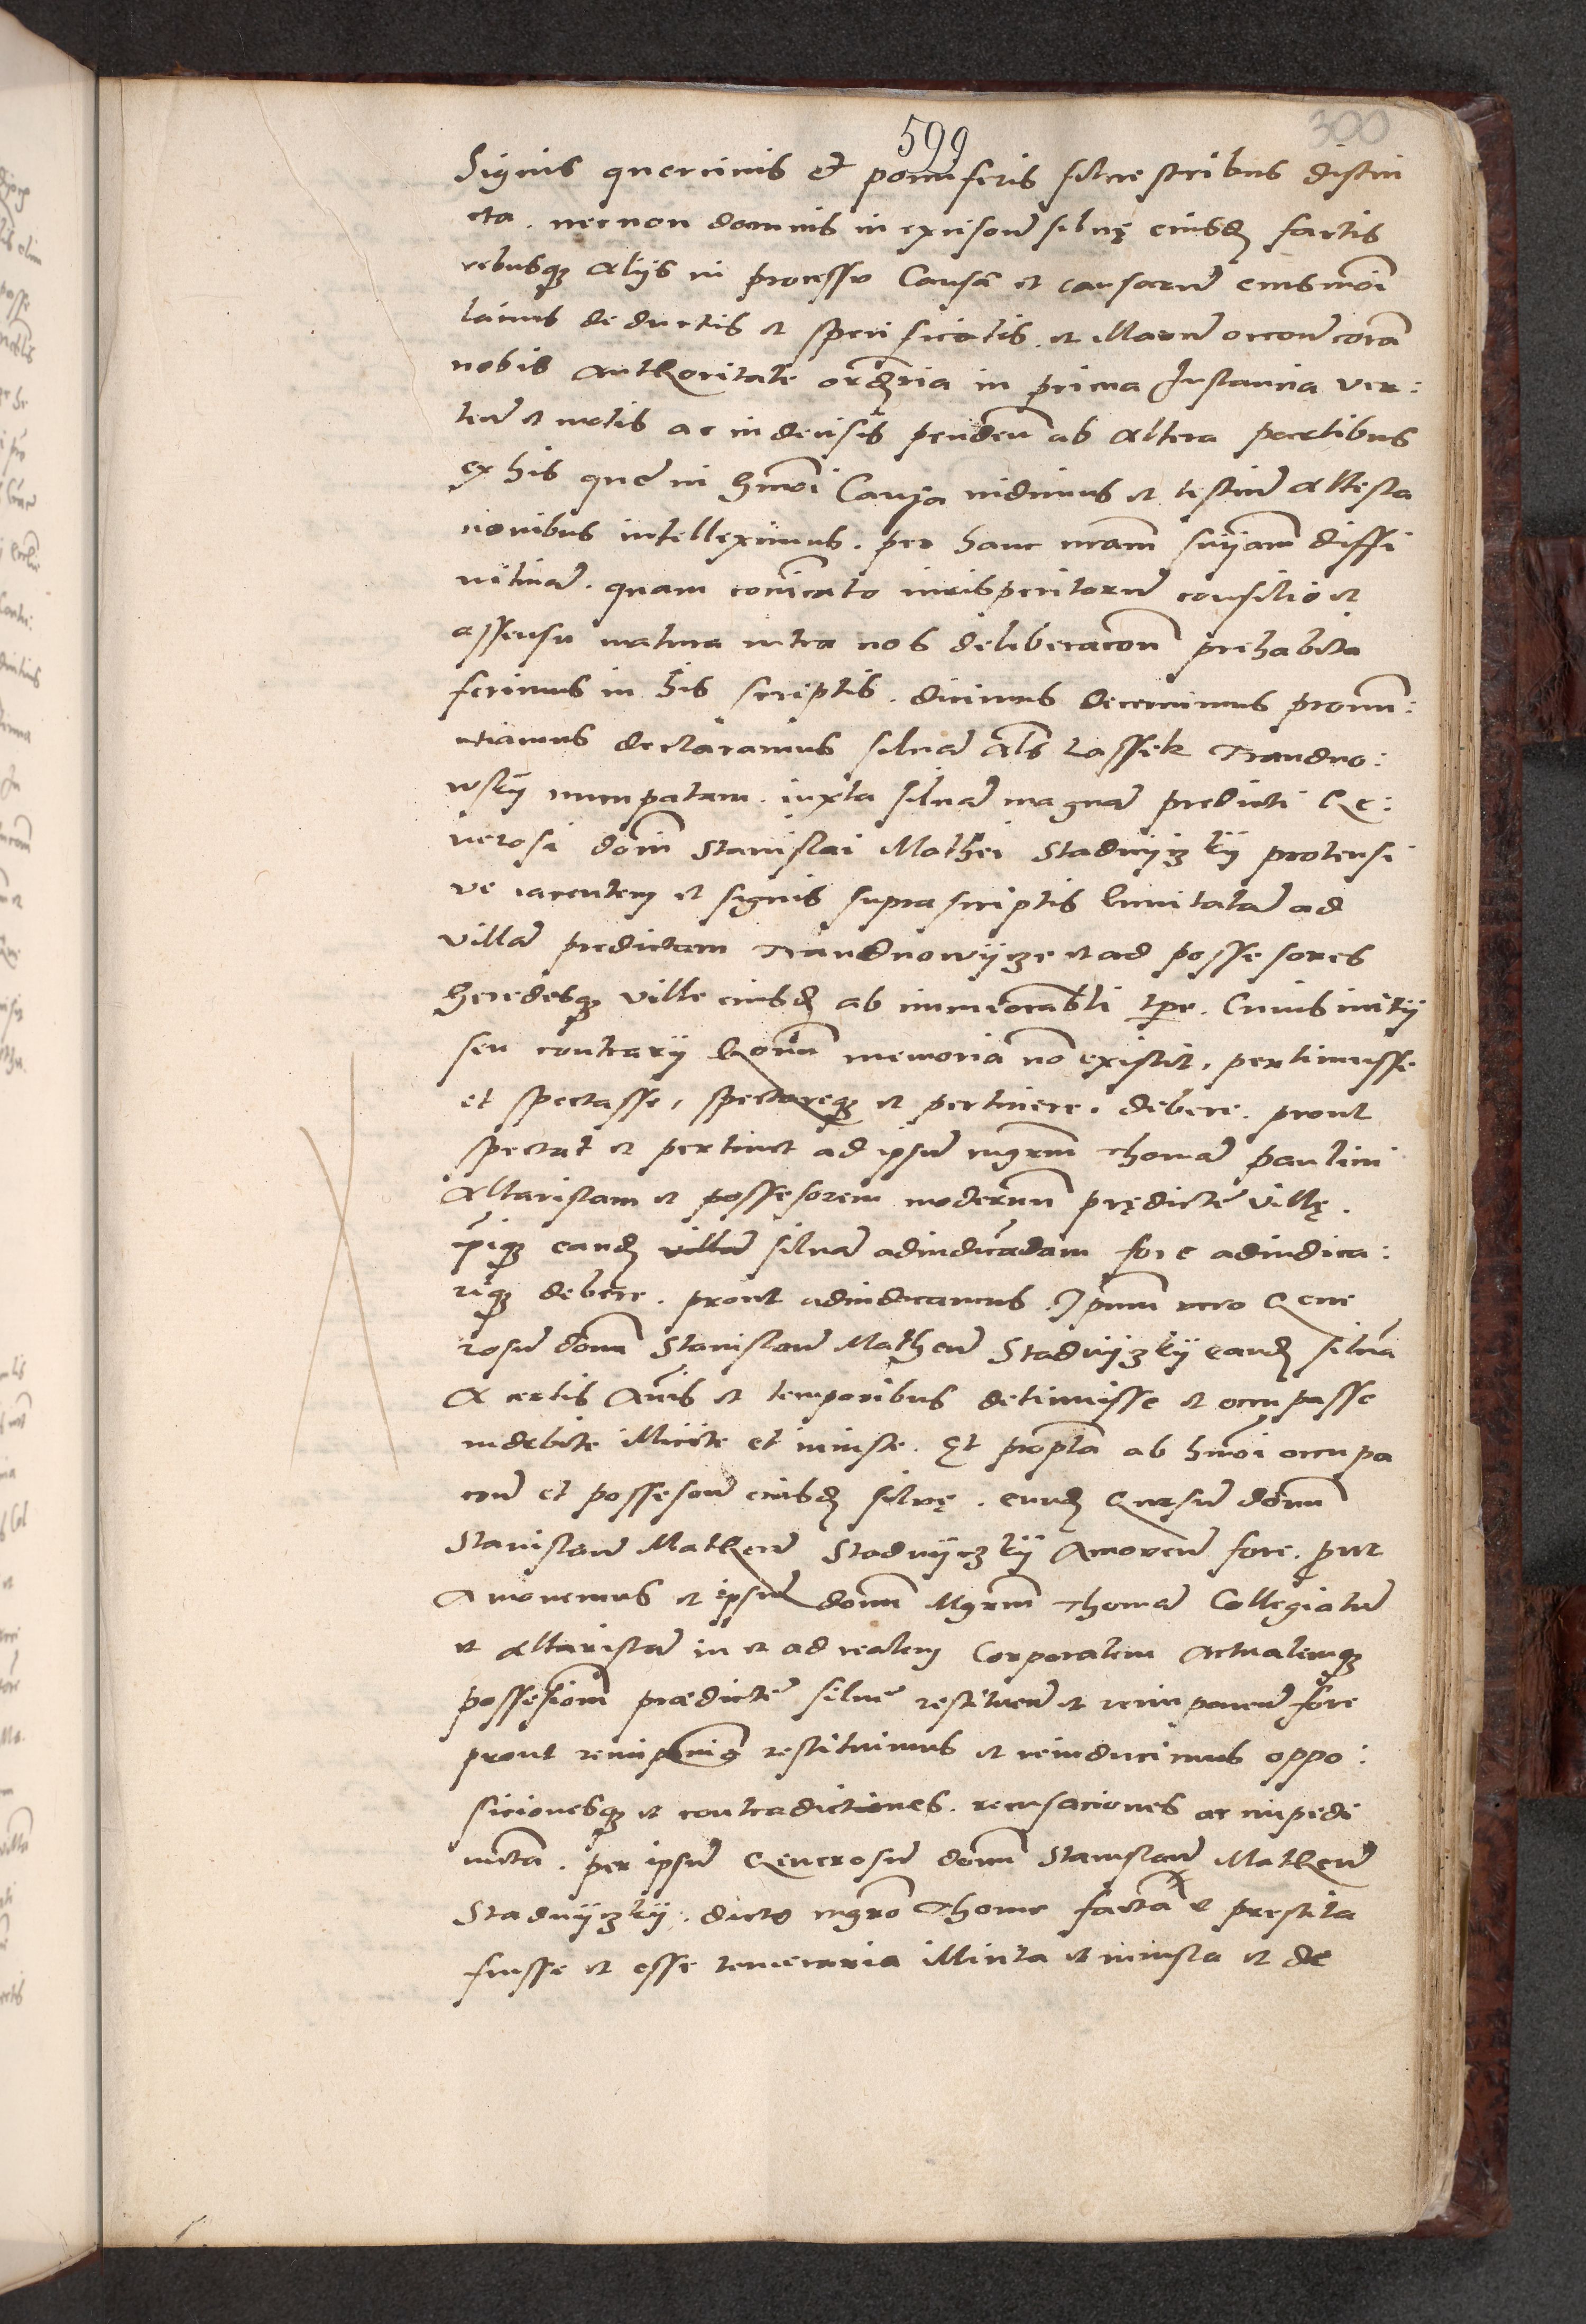 599
300
Signis quercinis et pomiferis silvestribus distin
cta . necnon damnis in excisione silvę eiusdẽ factis
rebusq3 alijs in processu Cause et causarũ eiusmõi
latius deductis et specificatis . et illarũ occõne corã
nobis authoritate ordĩria in prima Instancia ver:
teñ et motis ac indecisis pendeñ ab altera partibus
ex his quẽ in hmõi Causa vidimus et testiũ attesta
cionibus intelleximus . per hanc nrãm sniãm diffi
nitivã . quam cõmunicato iurisperitorũ consilio et
assensu matura intra nos deliberacõne prehabita
ferimus in his scriptis . dicimus decernimus pronun:
ctiamus declaramus silvã als Lassek Trandno:
wsky nuncpatam . iuxta silvã magnã predicti Ge:
nerosi dom̃ Stanislai Mathei Stadnyczky protensi
ve iacentem et signis suprascriptis limitatã ad
villã predictam Trandnowycze et ad possesores
heredesq3 ville eiusdẽ ab immeorabli tpe . Cuius initij
seu contrarij hoĩm memoria nõ existit , pertinuisse
et spectasse , spectareq3 et pertinere . debere . prout
spectat et pertinet ad ipsũ mgrm̃ Thomã paulini
Altaristam et possesorem modernũ prędictẽ villę .
ipiq3 eandẽ villã silvã adiudicãdam fore adiudica:
riq3 debere . prout adiudicamus . Ipum̃ vero Gene
rosũ dom̃ Stanislaũ Matheũ Stadnyczky eandẽ silvã
A certis Annis et temporibus detinuisse et occupasse
indebite illicite et iniuste . Et proptã ab hmõi occupa
cõne et possesione eiusdẽ silvę . eundẽ Gnrsũ dom̃
Stanislaũ Matheũ Stadnyczky Amoveñ fore . prut
Amovemus et ipsũ dom̃ Mgrm̃ Thomã Collegiatũ
et altaristã in et ad realem Corporalem Actualemq3
possesionẽ prædictẽ silvẽ restitueñ et reimponeñ fore
prout reimponimus restituimus et reinducimus oppo:
sicionesq3 et contradictiones . recusaciones ac impedi
mẽta . per ipsũ Generosũ dom̃ Stanislaũ Matheũ
Stadnyczky . dicto mgrõ Thome facta et prestita
fuisse et esse temeraria illicita et iniusta et de